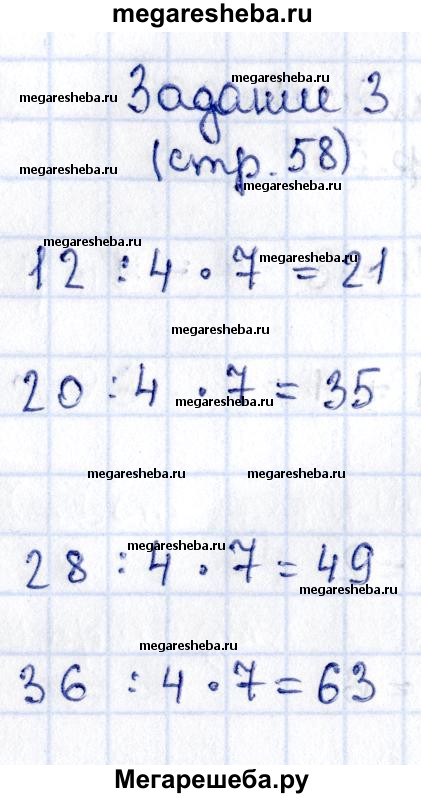 megaresheba.ru
megaresheba.ru
megaresheba.ru
Задание 3
megaresheba.ru
(стр. 58)
megaresheba.ru
megaresheba.ru
megaresheba.ru
12 : 4 · 7 = 21
megaresheba.ru
20 : 4 · 7 = 35
megaresheba.ru
megaresheba.ru megaresheba.ru
megaresheba.ru
28 : 4 · 7 = 49
megaresheba.ru
megaresheba.ru
36 : 4 · 7 = 63
Мегарешеба.ру